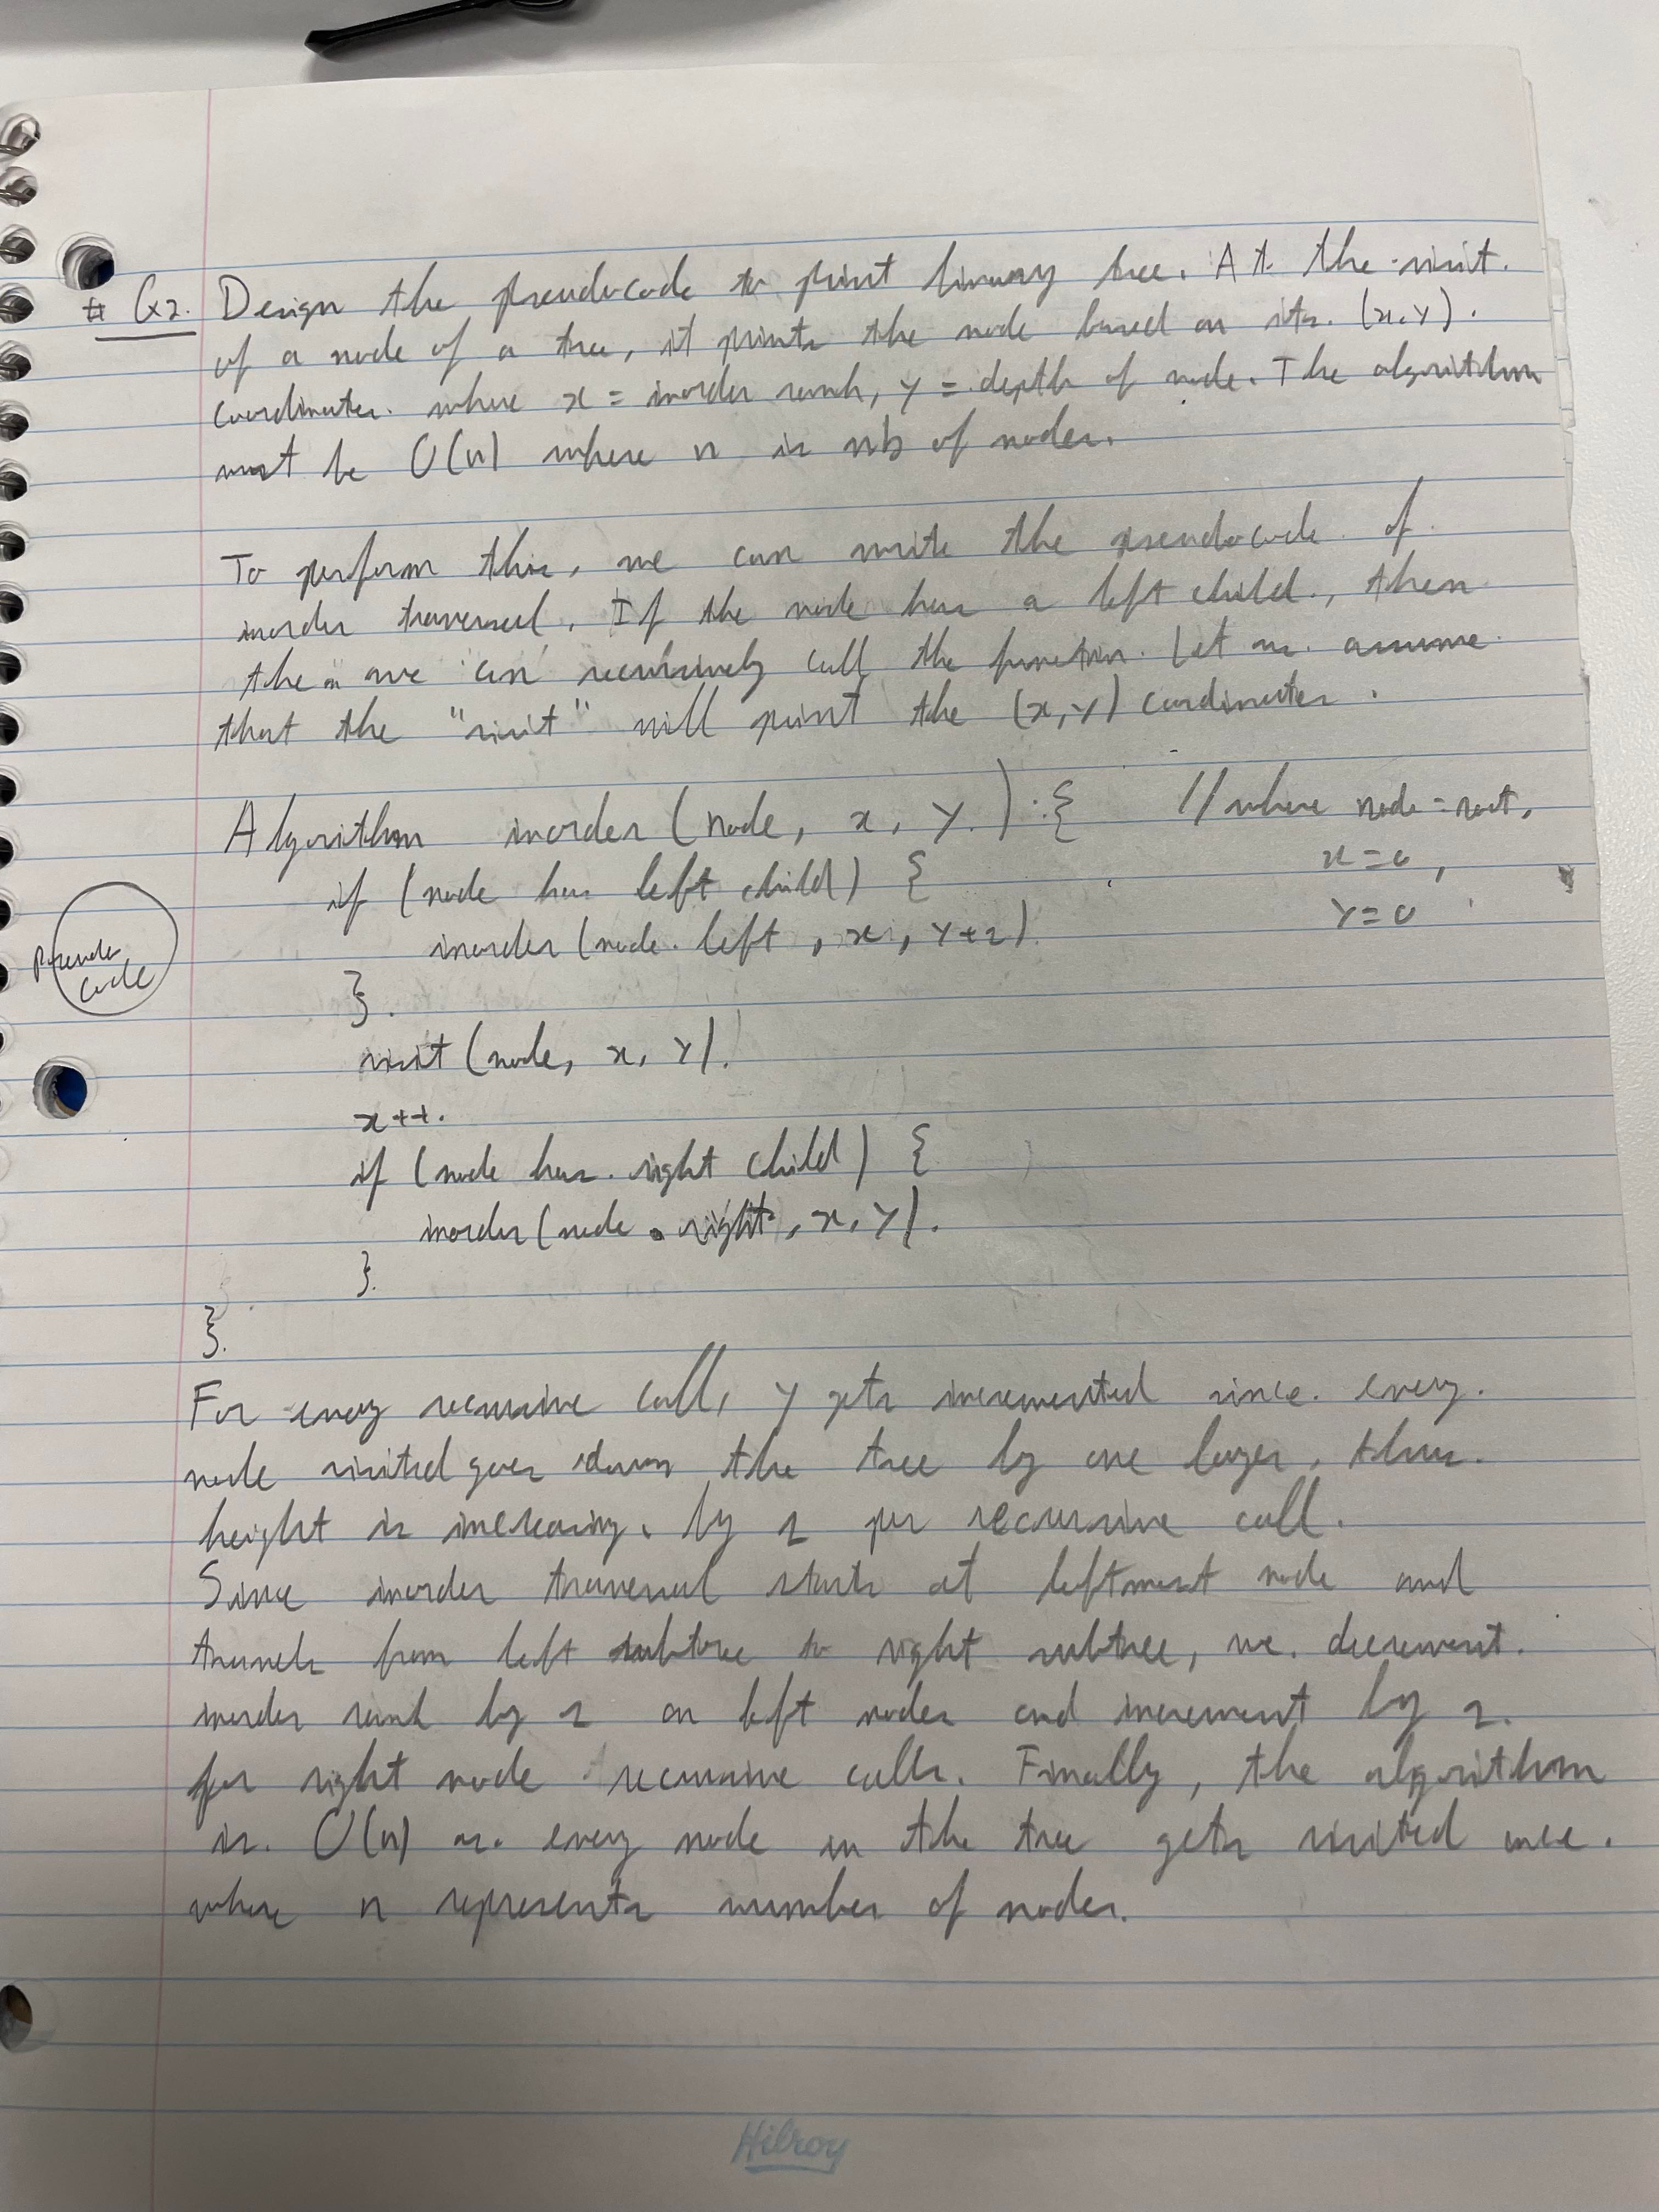 # Q2. Design the pseudocode to print binary tree. At the visit.
of a node of a tree, it prints the node based on its. (x,y).
coordinates. where x = inorder rank, y = depth of node. The algorithm
must be O(n) where n is nb of nodes.
To perform this, we can write the pseudocode of.
inorder traversal. If the node has a left child., then
then we can recursively call the function. Let us. assume
that the "visit" will print the (x,y) coordinates.
Algorithm inorder (node, x, y.) { // where node = root,
x=0,
if (node has left child) {
y=0
inorder (node. left, x, y+1)
Pseudo
code
}.
visit (node, x, y).
x++.
if (node has. right child) {
inorder (node . right, x, y).
}.
}.
For every recursive call, y gets incremented since. every.
node visited goes down the tree by one layer, thus.
height is increasing. by 1 per recursive call.
Since inorder traversal starts at leftmost node and
travels from left subtree to right subtree, we. decrement.
inorder rank by 1 on left nodes and increment by 1.
for right node recursive calls. Finally, the algorithm
is. O(n) as. every node in the tree gets visited once.
where n represents number of nodes.
Hilroy